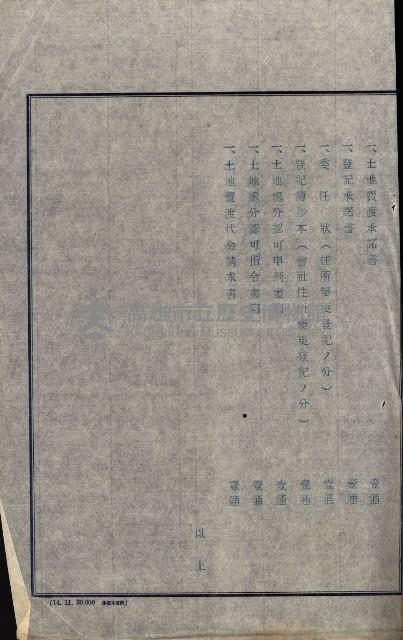 一、土地賣渡承諾書 壹通
一、登記承諾書 壹通
一、委任狀(住所變更登記ノ分) 壹通
一、登記簿抄本(會社住所變更登記ノ分) 壹通
一、土地處分認可申請書寫 壹通
一、土地處分認可指令書寫 壹通
一、土地賣渡代金請求書 壹通
以上
高雄市立歷史博物館
KAOHSIUNG MUSEUM OF HISTORY
(14. 11. 30.000